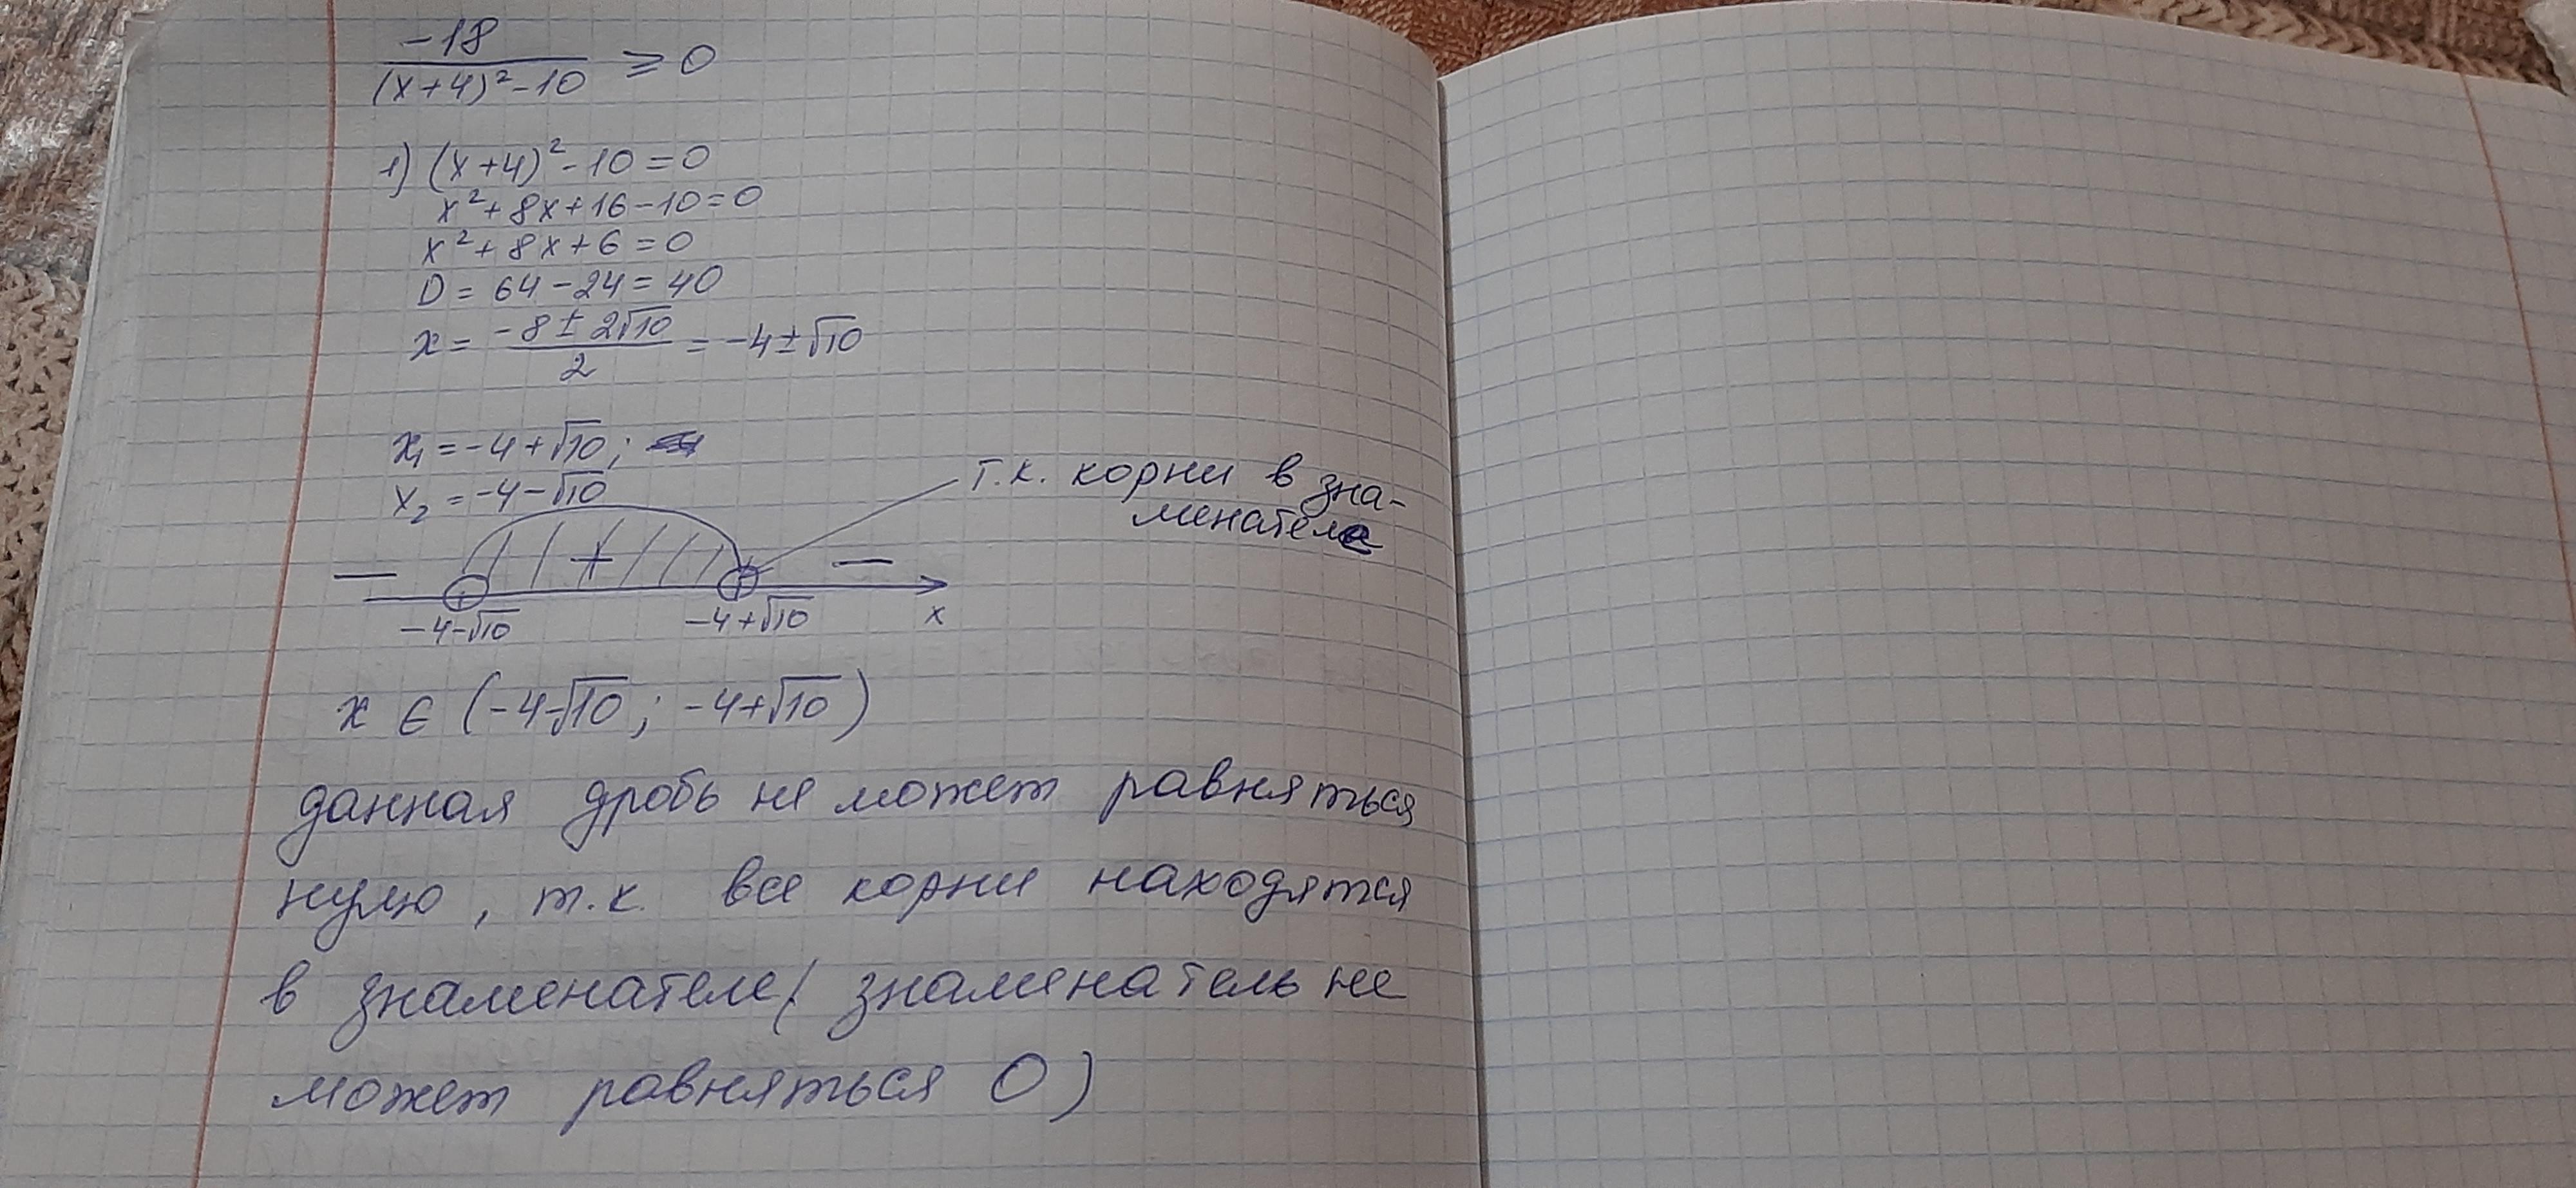 -18
(x+4)²-10 ≥ 0
1) (x+4)²-10=0
x²+8x+16-10=0
x²+8x+6=0
D=64-24=40
x= -8±2√10
2 = -4±√10
x₁=-4+√10;
x₂=-4-√10
т.к. корни в зна-
менателе
— + —
-4-√10 -4+√10 x
x ∈ (-4-√10; -4+√10)
данная дробь не может равняться
нулю, т.к. все корни находятся
в знаменателе( знаменатель не
может равняться 0)